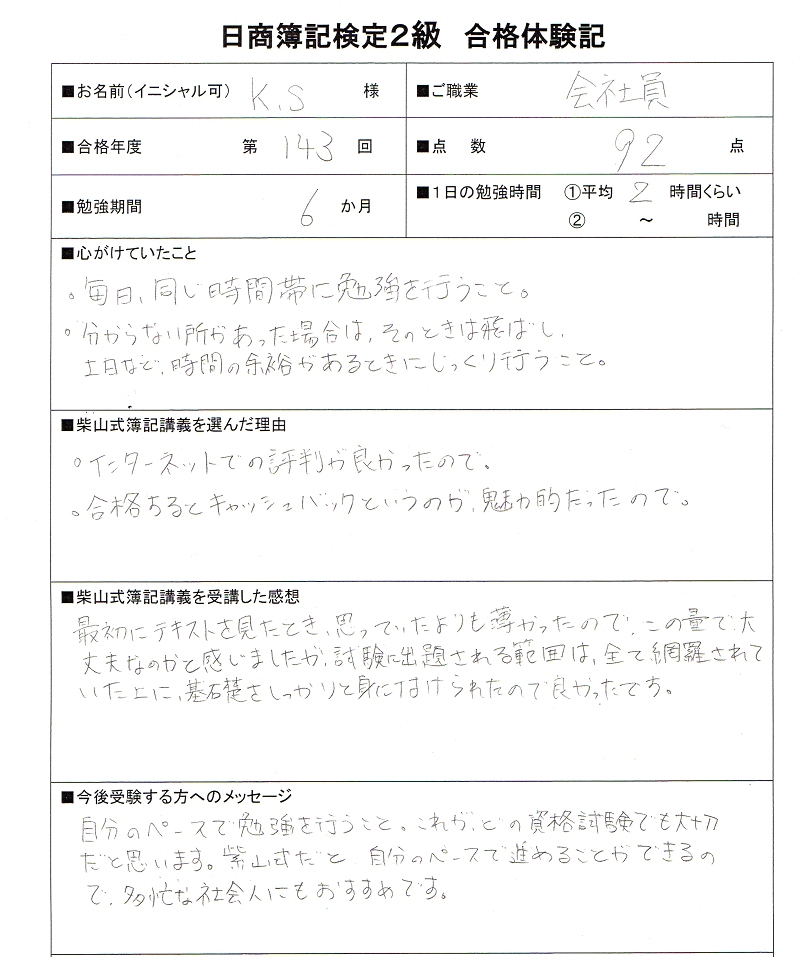 日商簿記検定2級 合格体験記
■お名前(イニシャル可) K.S 様 ■ご職業 会社員
■合格年度 第 143 回 ■点 数 92 点
■勉強期間 6 か月 ■1日の勉強時間 ①平均 2 時間くらい
② ~ 時間
■心がけていたこと
。毎日、同じ時間帯に勉強を行うこと。
。分からない所があった場合は、そのときは飛ばし、
土日など、時間の余裕があるときにじっくり行うこと。
■柴山式簿記講義を選んだ理由
。インターネットでの評判が良かったので。
。合格するとキャッシュバックというのが、魅力的だったので。
■柴山式簿記講義を受講した感想
最初にテキストを見たとき、思っていたよりも薄かったので、この量で大
丈夫なのかと感じましたが、試験に出題される範囲は、全て網羅されて
いた上に、基礎をしっかりと身に付けられたので良かったです。
■今後受験する方へのメッセージ
自分のペースで勉強を行うこと。これが、どの資格試験でも大切
だと思います。柴山式だと、自分のペースで進めることができるの
で、多忙な社会人にもおすすめです。